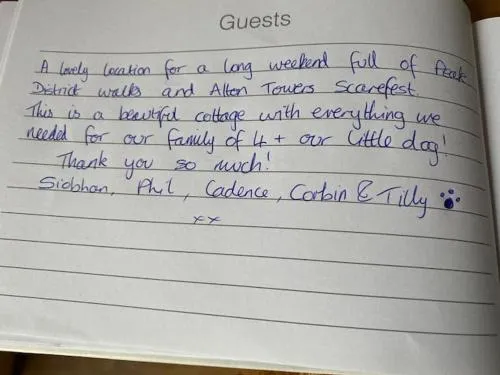 Guests
A lovely location for a long weekend full of Peak
District walks and Alton Towers Scarefest.
This is a beautiful cottage with everything we
needed for our family of 4 + our little dog!
Thank you so much!
Siobhan, Phil, Cadence, Corbin & Tilly
xx